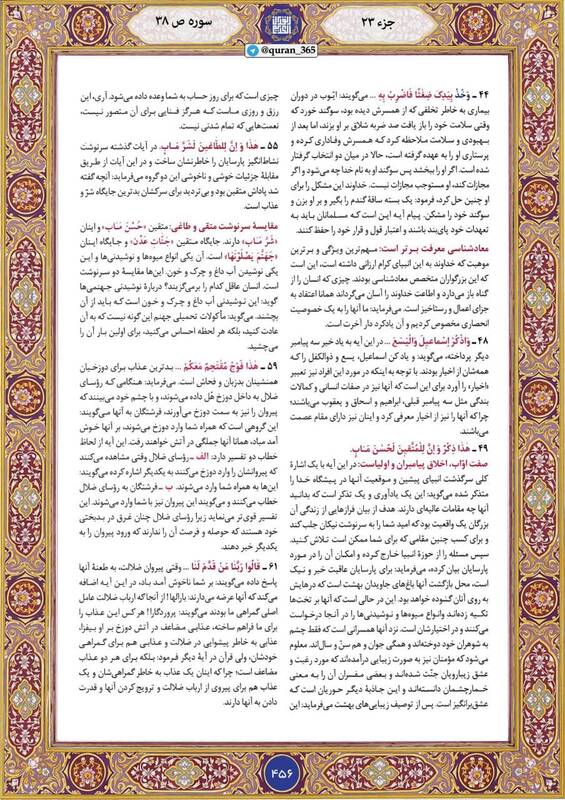 جزء ۲۳
سوره ص ۳۸
@quran_365
۴۴ ـ وَخُذْ بِیَدِکَ ضِغْثًا فَاضْرِبْ بِهِ ... می‌گویند: ایّوب در دوران
بیماری به خاطر تخلفی که از همسرش دیده بود، سوگند خورد که
وقتی سلامت خود را باز یافت صد ضربه شلاق بر او بزند، اما بعد از
بهبودی و سلامت ملاحظه کرد که همسرش وفاداری کرده و
پرستاری او را به عهده گرفته است، حالا در میان دو انتخاب گرفتار
شده است. اگر او را ببخشد پس سوگند او به نام خدا چه می‌شود و اگر
مجازات کند، او مستوجب مجازات نیست. خداوند این مشکل را برای
او چنین حل کرد، فرمود: یک بسته ساقهٔ گندم را بگیر و بر او بزن و
سوگند خود را مشکن. پیام آیه این است که مسلمانان باید به
تعهدات خود پای‌بند باشند و اعتبار قول و قرار خود را حفظ کنند.
معادشناسی معرفت برتر است: مهم‌ترین ویژگی و برترین
موهبت که خداوند به این انبیای کرام ارزانی داشته است، این است
که این بزرگواران متخصص معادشناسی بودند. چیزی که انسان را از
گناه باز می‌دارد و اطاعت خداوند را آسان می‌گرداند همانا اعتقاد به
جزای اعمال و رستاخیز است. می‌فرماید: ما آنها را به یک خصوصیت
انحصاری مخصوص کردیم و آن یادکرد دار آخرت است.
۴۸ ـ وَاذْکُرْ إِسْمَاعِیلَ وَالْیَسَعَ ... در این آیه به یاد خیر سه پیامبر
دیگر پرداخته، می‌گوید: و یاد کن اسماعیل، یسع و ذوالکفل را که
همه‌شان از اخیار بودند. با توجه به اینکه در مورد این افراد نیز تعبیر
«اخیار» را آورد برای این است که آنها نیز در صفات انسانی و کمالات
بندگی مثل سه پیامبر قبلی، ابراهیم و اسحاق و یعقوب می‌باشند؛
چرا که آنها را نیز از اخیار معرفی کرد و اینان نیز دارای مقام عصمت
می‌باشند.
۴۹ ـ هَذَا ذِکْرٌ وَ إِنَّ لِلْمُتَّقِینَ لَحُسْنَ مَـَابٍ.
صفت اوّاب، اخلاق پیامبران و اولیاست: در این آیه با یک اشارهٔ
کلی سرگذشت انبیای پیشین و موقعیت آنها در پیشگاه خدا را
متذکر شده می‌گوید: این یک یادآوری و یک تذکر است که بدانید
آنها چه مقامات عالیه‌ای دارند. هدف از بیان فرازهایی از زندگی آن
بزرگان یک واقعیت بود که امید شما را به سرنوشت نیکان جلب کند
و برای کسب چنین مقامی که برای شما ممکن است تلاش کنید.
سپس مسئله را از حوزهٔ انبیا خارج کرده و امکان آن را در مورد
پارسایان بیان کرده، می‌فرماید: برای پارسایان عاقبت خیر و نیک
است، محل بازگشت آنها باغ‌های جاویدان بهشت است که درهایش
به روی آنان گشوده خواهد بود. این در حالی است که آنها بر تخت‌ها
تکیه زده‌اند و انواع میوه‌ها و نوشیدنی‌ها را در آنجا درخواست
می‌کنند و در اختیارشان است، نزد آنها همسرانی است که فقط چشم
به شوهران خود دوخته‌اند و همگی جوان و هم سنّ و سال‌اند. معلوم
می‌شود که مؤمنان نیز به صورت زیبایی درآمده‌اند که مورد رغبت و
عشق زیبارویان جنّت شده‌اند و بعضی مفسران آن را به معنی
خمارچشمان دانسته‌اند و این جاذبهٔ دیگر حوریان است که
عشق‌برانگیز است. پس از توصیف زیبایی‌های بهشت می‌فرماید: این
چیزی است که برای روز حساب به شما وعده داده می‌شود. آری، این
رزق و روزی ماست که هرگز فنایی برای آن متصور نیست،
نعمت‌هایی که تمام شدنی نیست.
۵۵ ـ هَذَا وَ إِنَّ لِلطَّاغِینَ لَشَرَّ مَـَابٍ. در آیات گذشته سرنوشت
نشاط‌انگیز پارسایان را خاطرنشان ساخت و در این آیات از طریق
مقابلهٔ جزئیات خوشی و ناخوشی این دو گروه می‌فرماید: آنچه گفته
شد پاداش متقین بود و بی‌تردید برای سرکشان بدترین جایگاه شرّ و
عذاب است.
مقایسهٔ سرنوشت متقی و طاغی: متقین «حُسْنَ مَـَابٍ» و اینان
«شَرَّ مَـَابٍ» دارند. جایگاه متقین «جَنَّاتِ عَدْنٍ» و جایگاه اینان
«جَهَنَّمَ یَصْلَوْنَهَا» است. آن یکی انواع میوه‌ها و نوشیدنی‌ها و این
یکی نوشیدن آب داغ و چرک و خون. این‌ها مقایسهٔ دو سرنوشت
است. انسان عاقل کدام را برمی‌گزیند؟ دربارهٔ نوشیدنی جهنمی‌ها
گوید: این نوشیدنی آب داغ و چرک و خون است که باید از آن
بچشند. می‌گوید: مأکولات تحمیلی جهنم این گونه نیست که به آن
عادت کنید، بلکه هر لحظه احساس می‌کنید، برای اولین بار آن را
می‌چشید.
۵۹ ـ هَذَا فَوْجٌ مُقْتَحِمٌ مَعَکُمْ ... بدترین عذاب برای دوزخیان
همنشینان بدزبان و فحاش است. می‌فرماید: هنگامی که رؤسای
ضلال به داخل دوزخ هُل داده می‌شوند، و با چشم خود می‌بینند که
پیروان را نیز به سمت دوزخ می‌آورند، فرشتگان به آنها می‌گویند:
این گروهی است که همراه شما وارد دوزخ می‌شوند، بر آنها خوش
آمد مباد، همانا آنها جملگی در آتش خواهند رفت. این آیه از لحاظ
خطاب دو تفسیر دارد: الف ـ رؤسای ضلال وقتی مشاهده می‌کنند
که پیروانشان را وارد دوزخ می‌کنند به یکدیگر اشاره کرده می‌گویند:
این‌ها به همراه شما وارد می‌شوند. ب ـ فرشتگان به رؤسای ضلال
خطاب می‌کنند و می‌گویند این پیروان نیز با شما وارد می‌شوند. این
تفسیر قوی‌تر می‌نماید زیرا رؤسای ضلال چنان غرق در بدبختی
خود هستند که حوصله و فرصت آن را ندارند که ورود پیروان را به
یکدیگر خبر دهند.
۶۱ ـ قَالُوا رَبَّنَا مَنْ قَدَّمَ لَنَا ... وقتی پیروان ضلالت، به طعنهٔ آنها
پاسخ داده می‌گویند: بر شما ناخوش آمد باد، در این آیه اضافه
می‌کند که آنها عرضه می‌دارند: بارالها! از آنجا که ارباب ضلالت عامل
اصلی گمراهی ما بودند می‌گویند: پروردگارا! هر کس این عذاب را
برای ما فراهم ساخته، عذابی مضاعف در آتش دوزخ بر او بیفزا،
عذابی به خاطر پیشوایی در ضلالت و عذابی هم برای گمراهی
خودشان، ولی قرآن در آیهٔ دیگر فرمود: بلکه برای هر دو عذاب
مضاعف است؛ چرا که اینان یک عذاب به خاطر گمراهی‌شان و یک
عذاب هم برای پیروی از ارباب ضلالت و ترویج کردن آنها و قدرت
دادن به آنها دارند.
۴۵۶